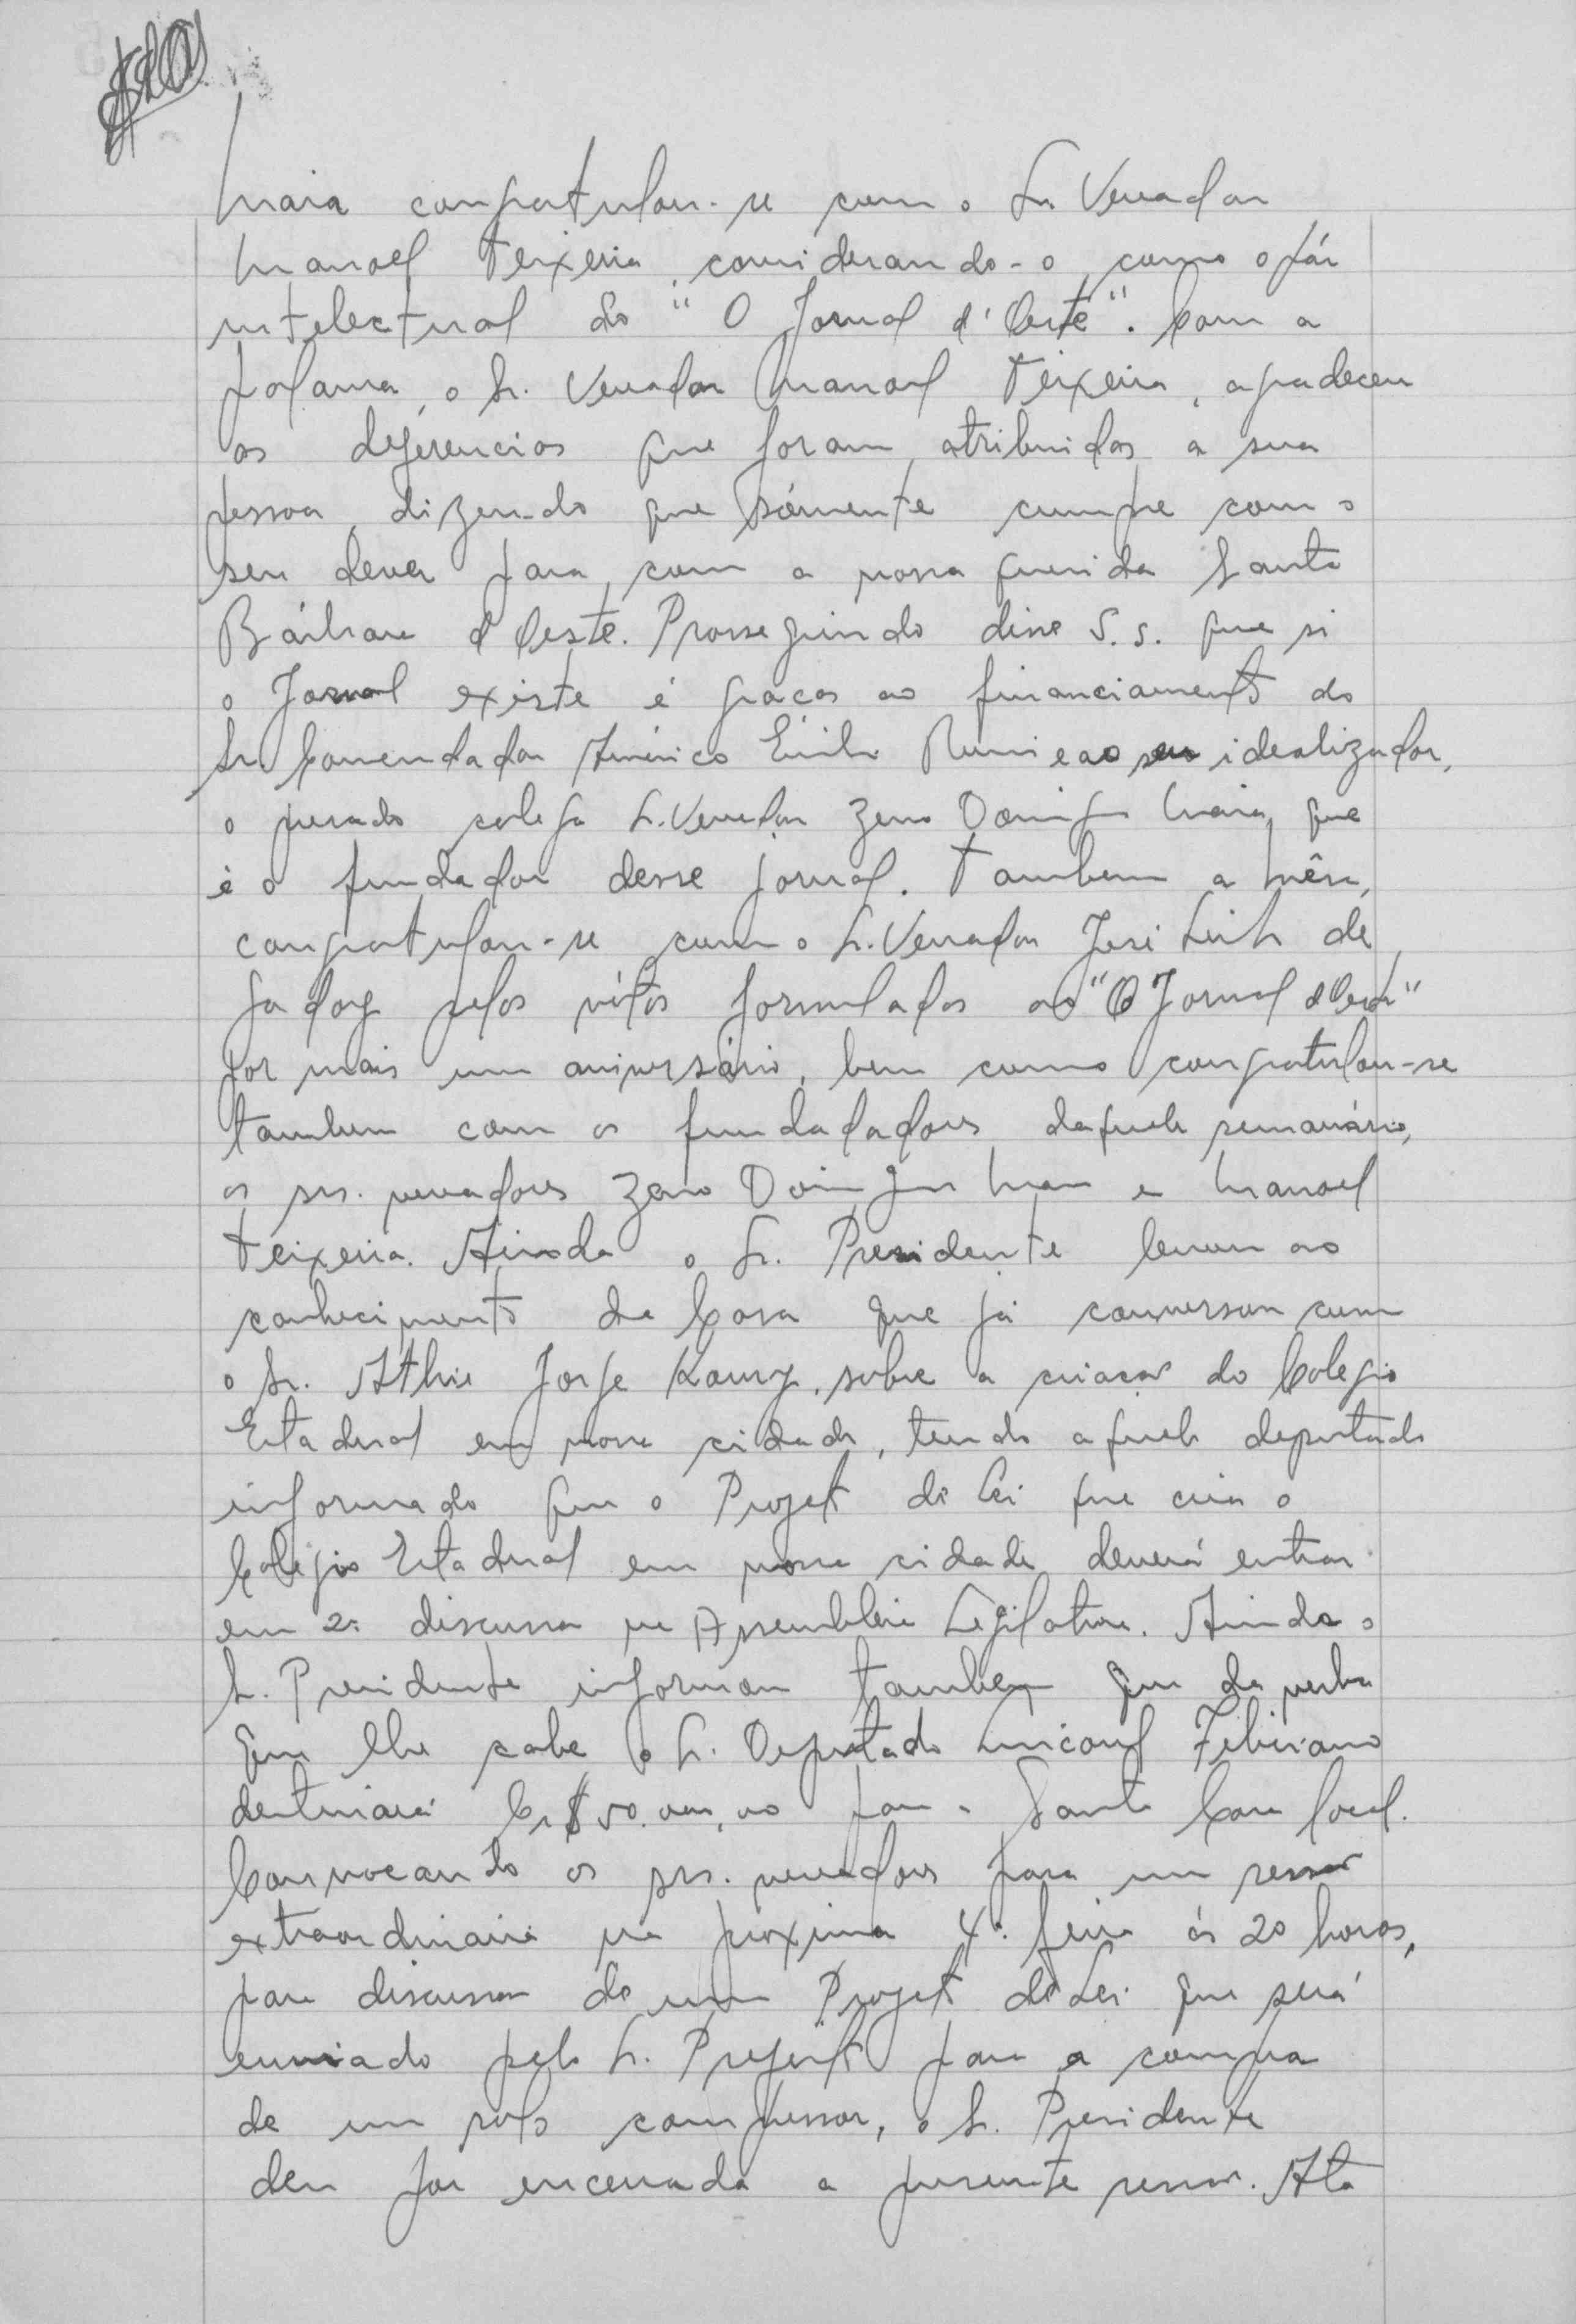 Maia congratulou-se com o Sr. Vereador
Manoel Teixeira, considerando-o como o pár
intelectual do "O Jornal d'Oeste". Com a
palavra, o Sr. Vereador Manoel Teixeira, agradeceu
as deferencias que foram atribuidas a sua
pessoa, dizendo que sómente cumpre com o
seu dever para com a nossa querida Santa
Bárbara d'Oeste. Prosseguindo disse S.S. que si
o Jornal existe é graças ao financiamento do
Sr. Comendador Américo Emilio Romi e ao seu idealizador,
o prezado colega Sr. Vereador Zeno Domingos Maia, que
é o fundador desse jornal. Tambem a Mêsa,
congratulou-se com o Sr. Vereador José Luiz de
Godoy pelos vótos formulados ao "O Jornal d'Oeste"
por mais um aniversário, bem como congratulou-se
tambem com os fundadadores daquele semanário,
os srs. vereadores Zeno Domingos Maia e Manoel
Teixeira. Ainda o Sr. Presidente levou ao
conhecimento da Casa que já conversou com
o Sr. Athie Jorge Koury, sobre a criacao do Colegio
Estadual em nossa cidade, tendo aquele deputado
informado que o Projeto de Lei que cria o
Colégio Estadual em nossa cidade deverá entrar
em 2ª discussao na Assembleia Legilativa. Ainda o
Sr. Presidente informou tambem que da verba
que lhe cabe o Sr. Deputado Feliciano
destinará Cr$ 50.000,00 para a Santa Casa local.
Convocando os srs. vereadores para um sessao
extraordinaria na proxima 4ª feira ás 20 horas,
para discussao de um Projeto de Lei que será
enviado pelo Sr. Prefeito para a compra
de um rolo compressor, o Sr. Presidente
deu por encerrada a presente sessao. Ata